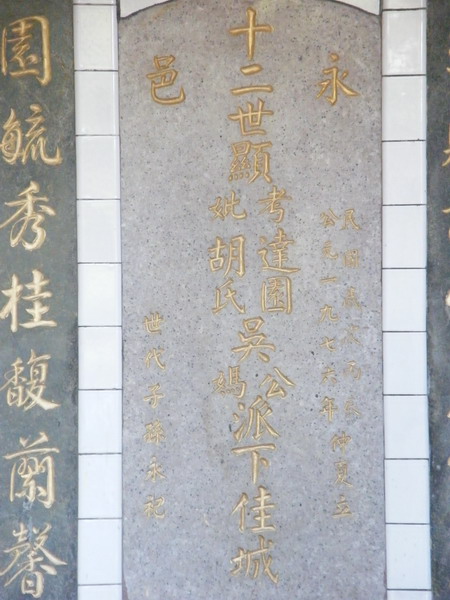 永
民國歲次丙辰
公元一九七六年
仲夏立
十二世顯
考達園
妣胡氏
吳
公
媽
派下佳城
邑
世代子孫永祀
園毓秀桂馥蘭馨